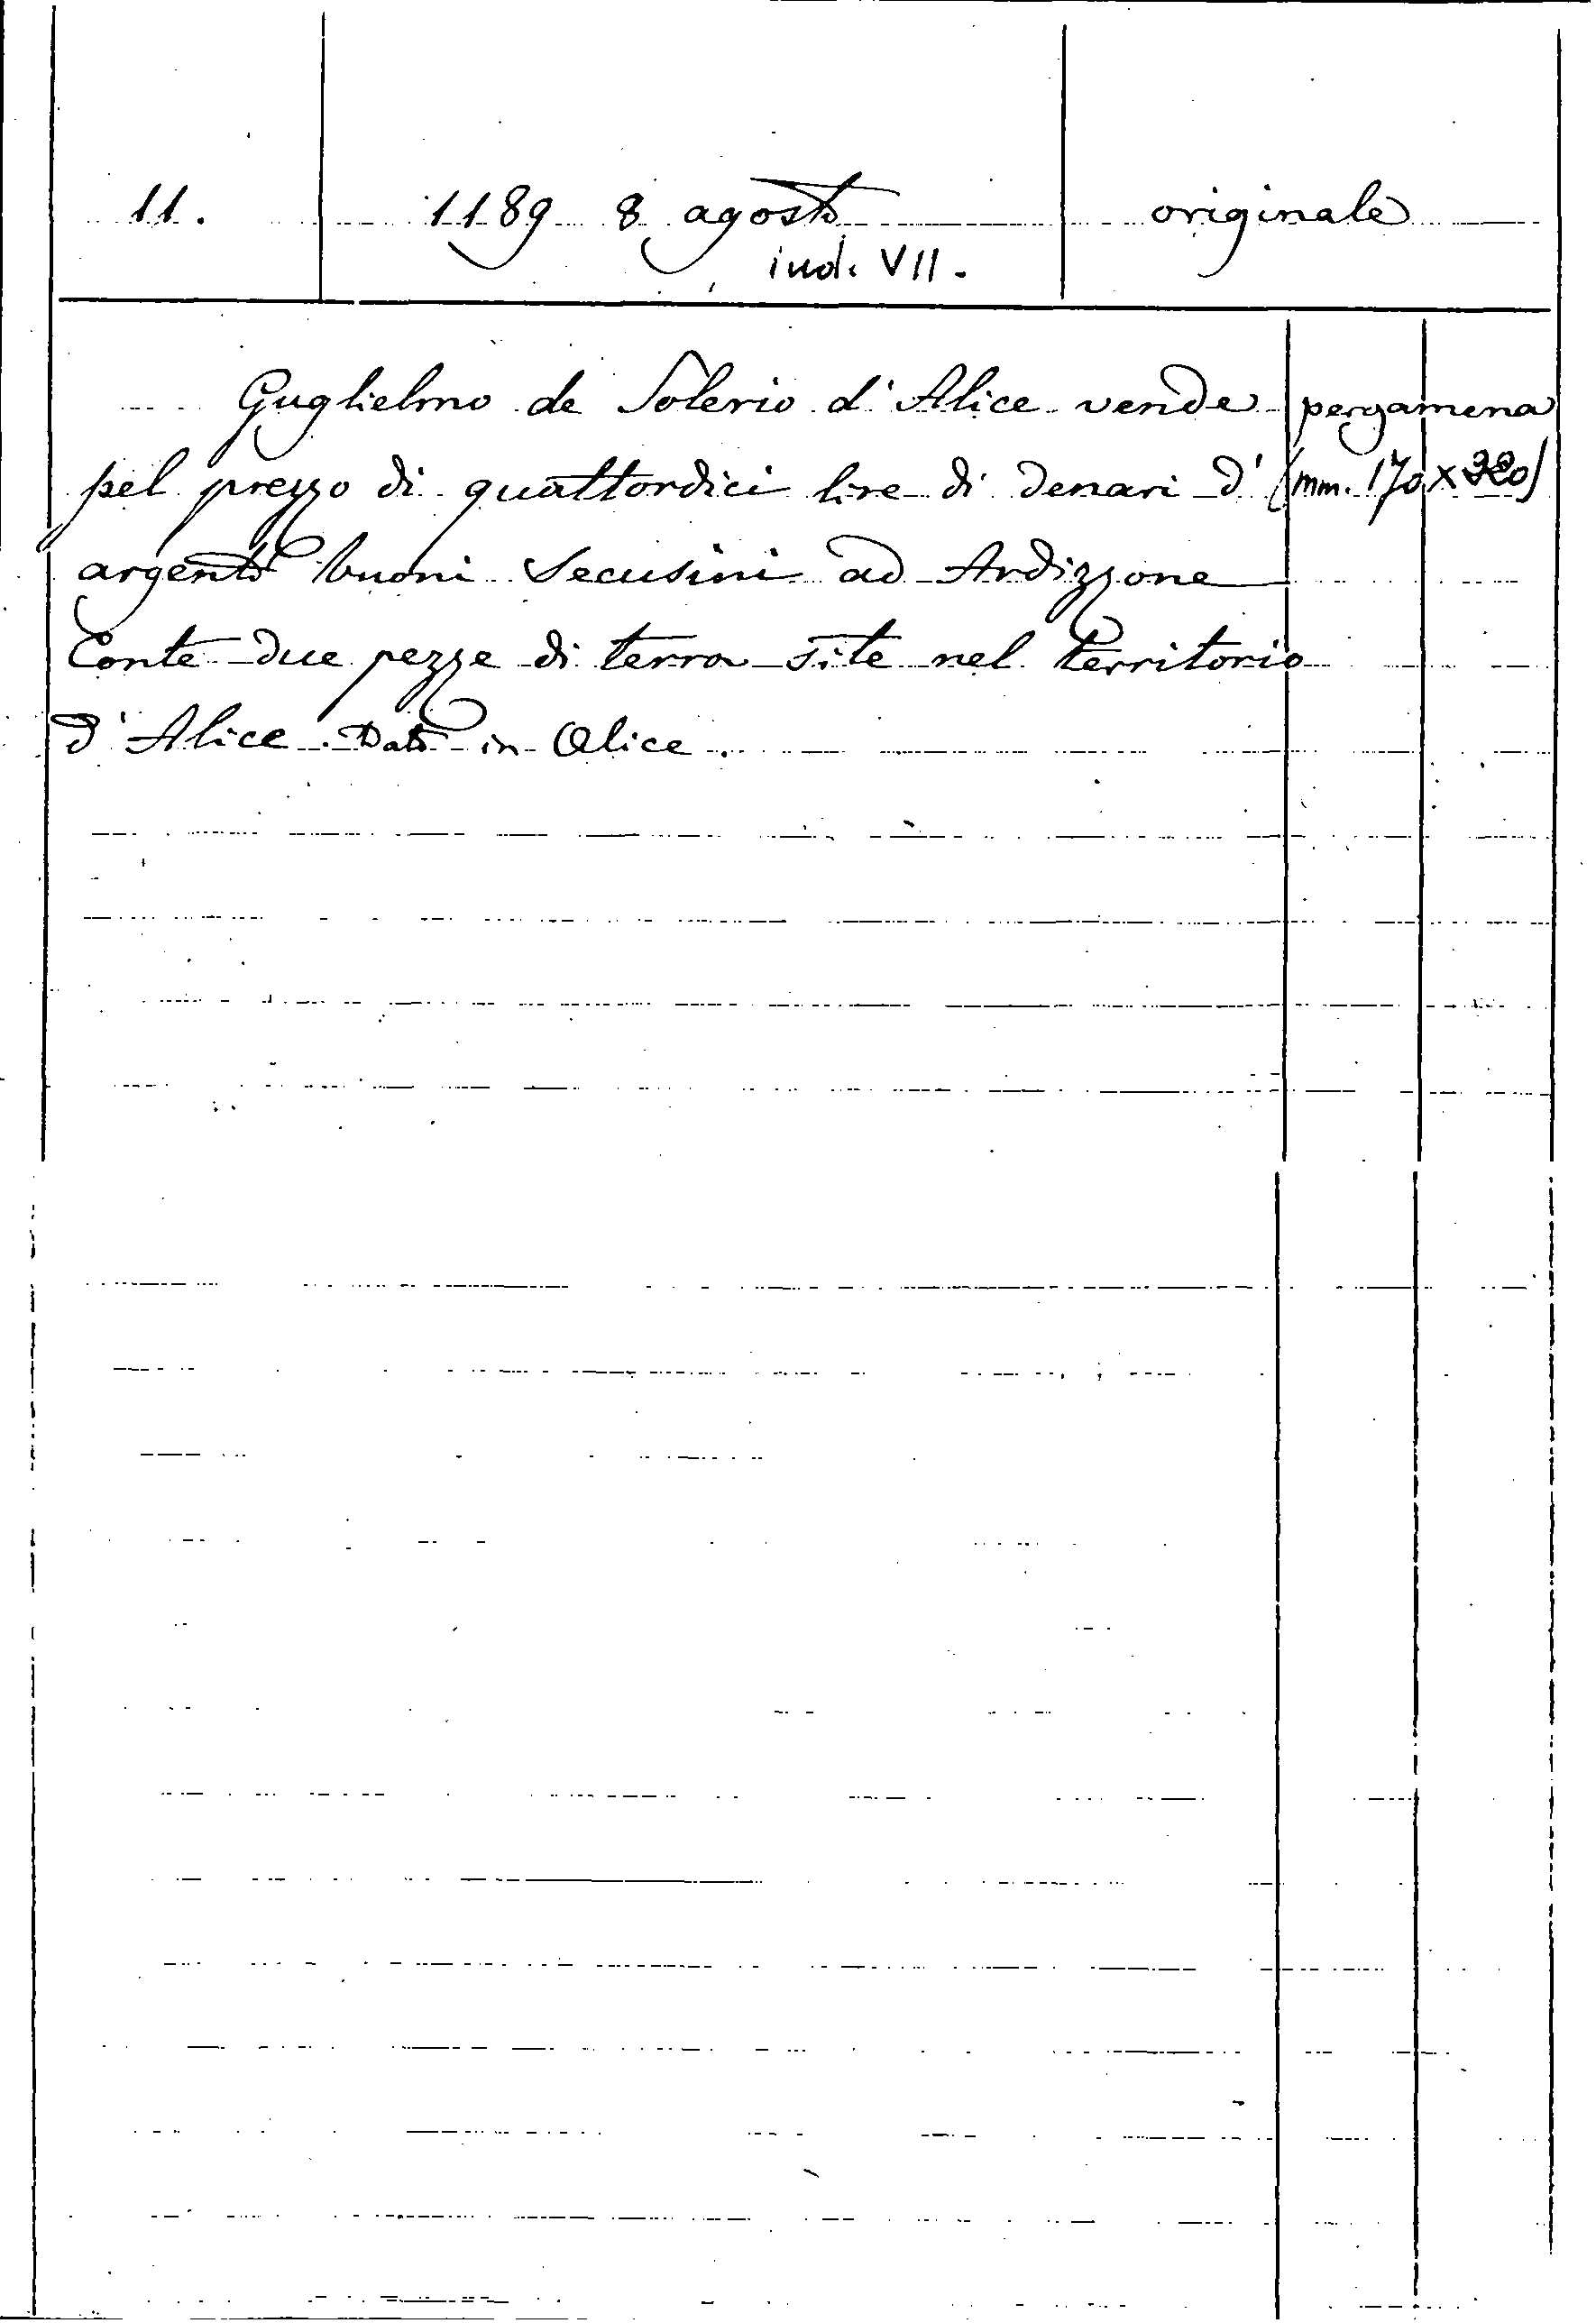 11. 1189 8 agosto originale
ind. VII.
Guglielmo de Solerio d'Alice vende pergamena
pel prezzo di quattordici lire di denari d' (mm. 170 x 320)
argento buoni Secusini ad Ardizzone
Conte due pezze di terra site nel territorio
d'Alice. Dato in Alice.